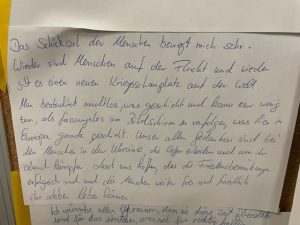 Das Schicksal der Menschen bewegt mich sehr.
Wieder sind Menschen auf der Flucht und wieder
gibt es einen neuen Kriegsschauplatz auf der Welt
Man beobachtet machtlos, was geschieht und kann nur wenig
tun, als fassungslos am Bildschirm zu verfolgen, was hier in
Europa gerade geschieht. Unser aller Gedanken sind bei
den Menschen in der Ukraine, die Opfer werden und um ihr
Land kämpfen. Lasst uns hoffen, dass die Friedensbemühungen
erfolgreich sind und die Menschen weiter frei und friedlich
ihr Leben leben können.
Wir wünschen allen Ukrainern, dass sie diese Zeit überstehen
und für das einstehen,